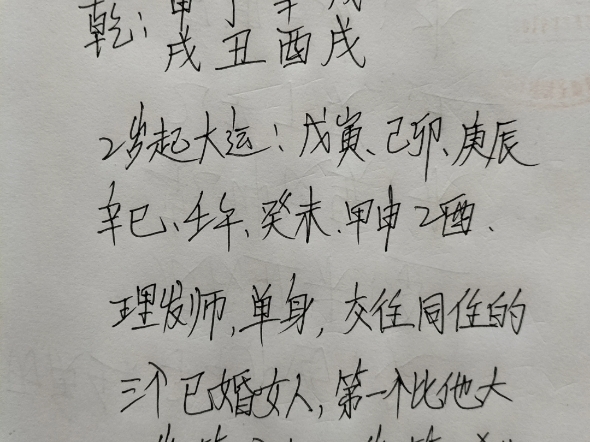 乾:甲丁辛戊
戌丑酉戌
2岁起大运:戊寅、己卯、庚辰
辛巳、壬午、癸未、甲申乙酉、
理发师,单身,交往同住的
三个已婚女人,第一个比他大